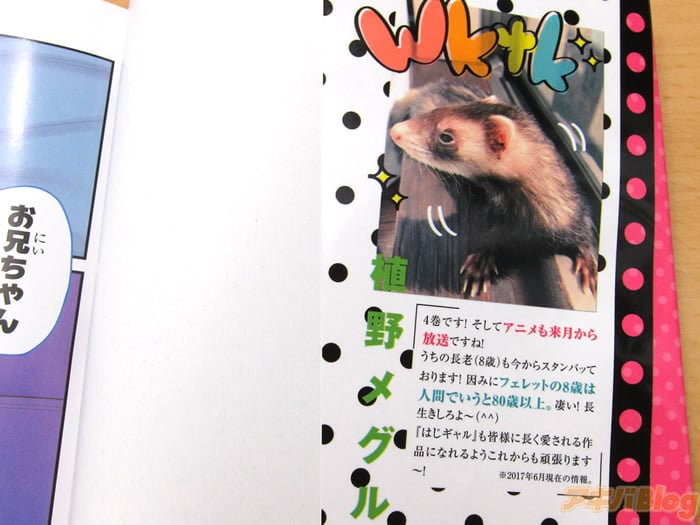 お兄ちゃん
にい
Wktk
植野メグル
4巻です! そしてアニメも来月から
放送ですね!
うちの長老(8歳)も今からスタンバッて
おります! 因みにフェレットの8歳は
人間でいうと80歳以上。凄い! 長
生きしろよ〜(^^)
『はじギャル』も皆様に長く愛される作
品になれるようこれからも頑張ります
〜!
※2017年6月現在の情報。
アキバBlog